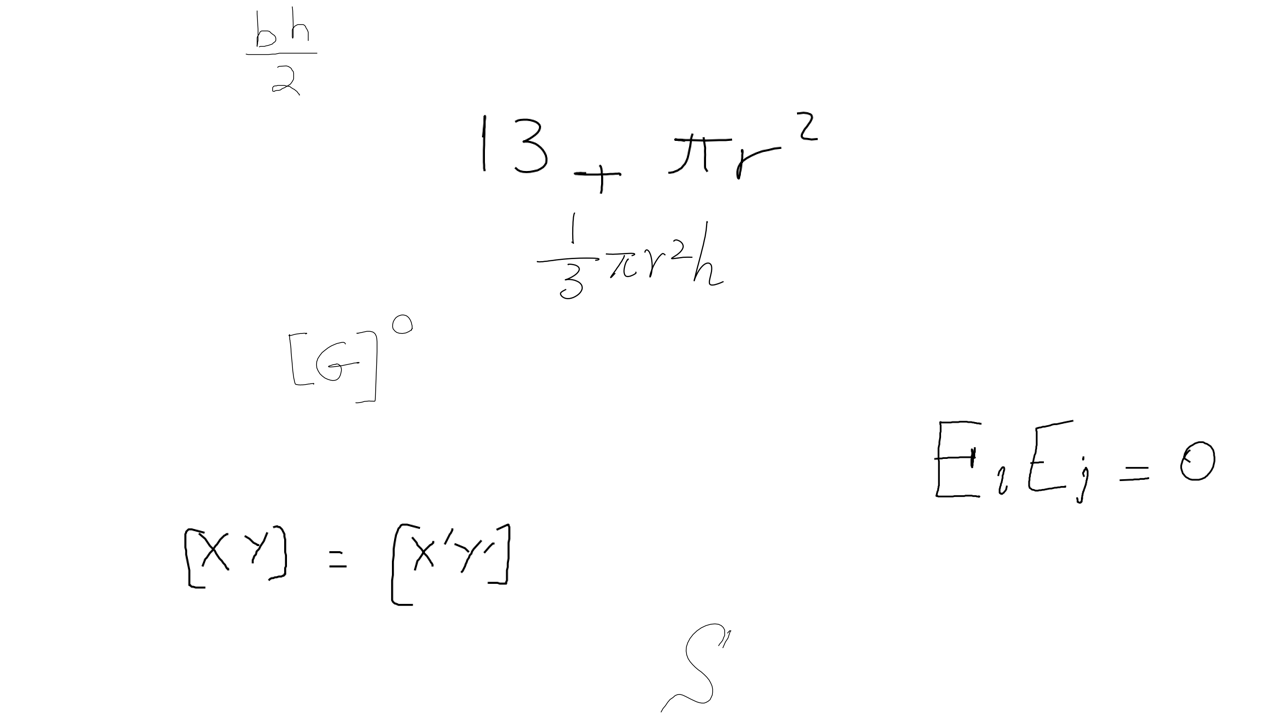 \frac{bh}{2}
13 + πr²
\frac{1}{3}πr²h
[G]⁰
E_i E_j = 0
[XY] = [X'Y']
S'